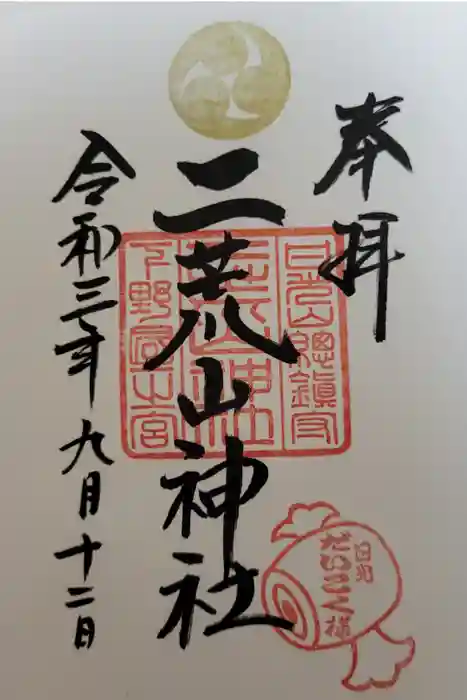 奉拝
二荒山神社
令和三年九月十二日
日光山總鎮守
二荒山神社
下野國一之宮
日光
だいこく様